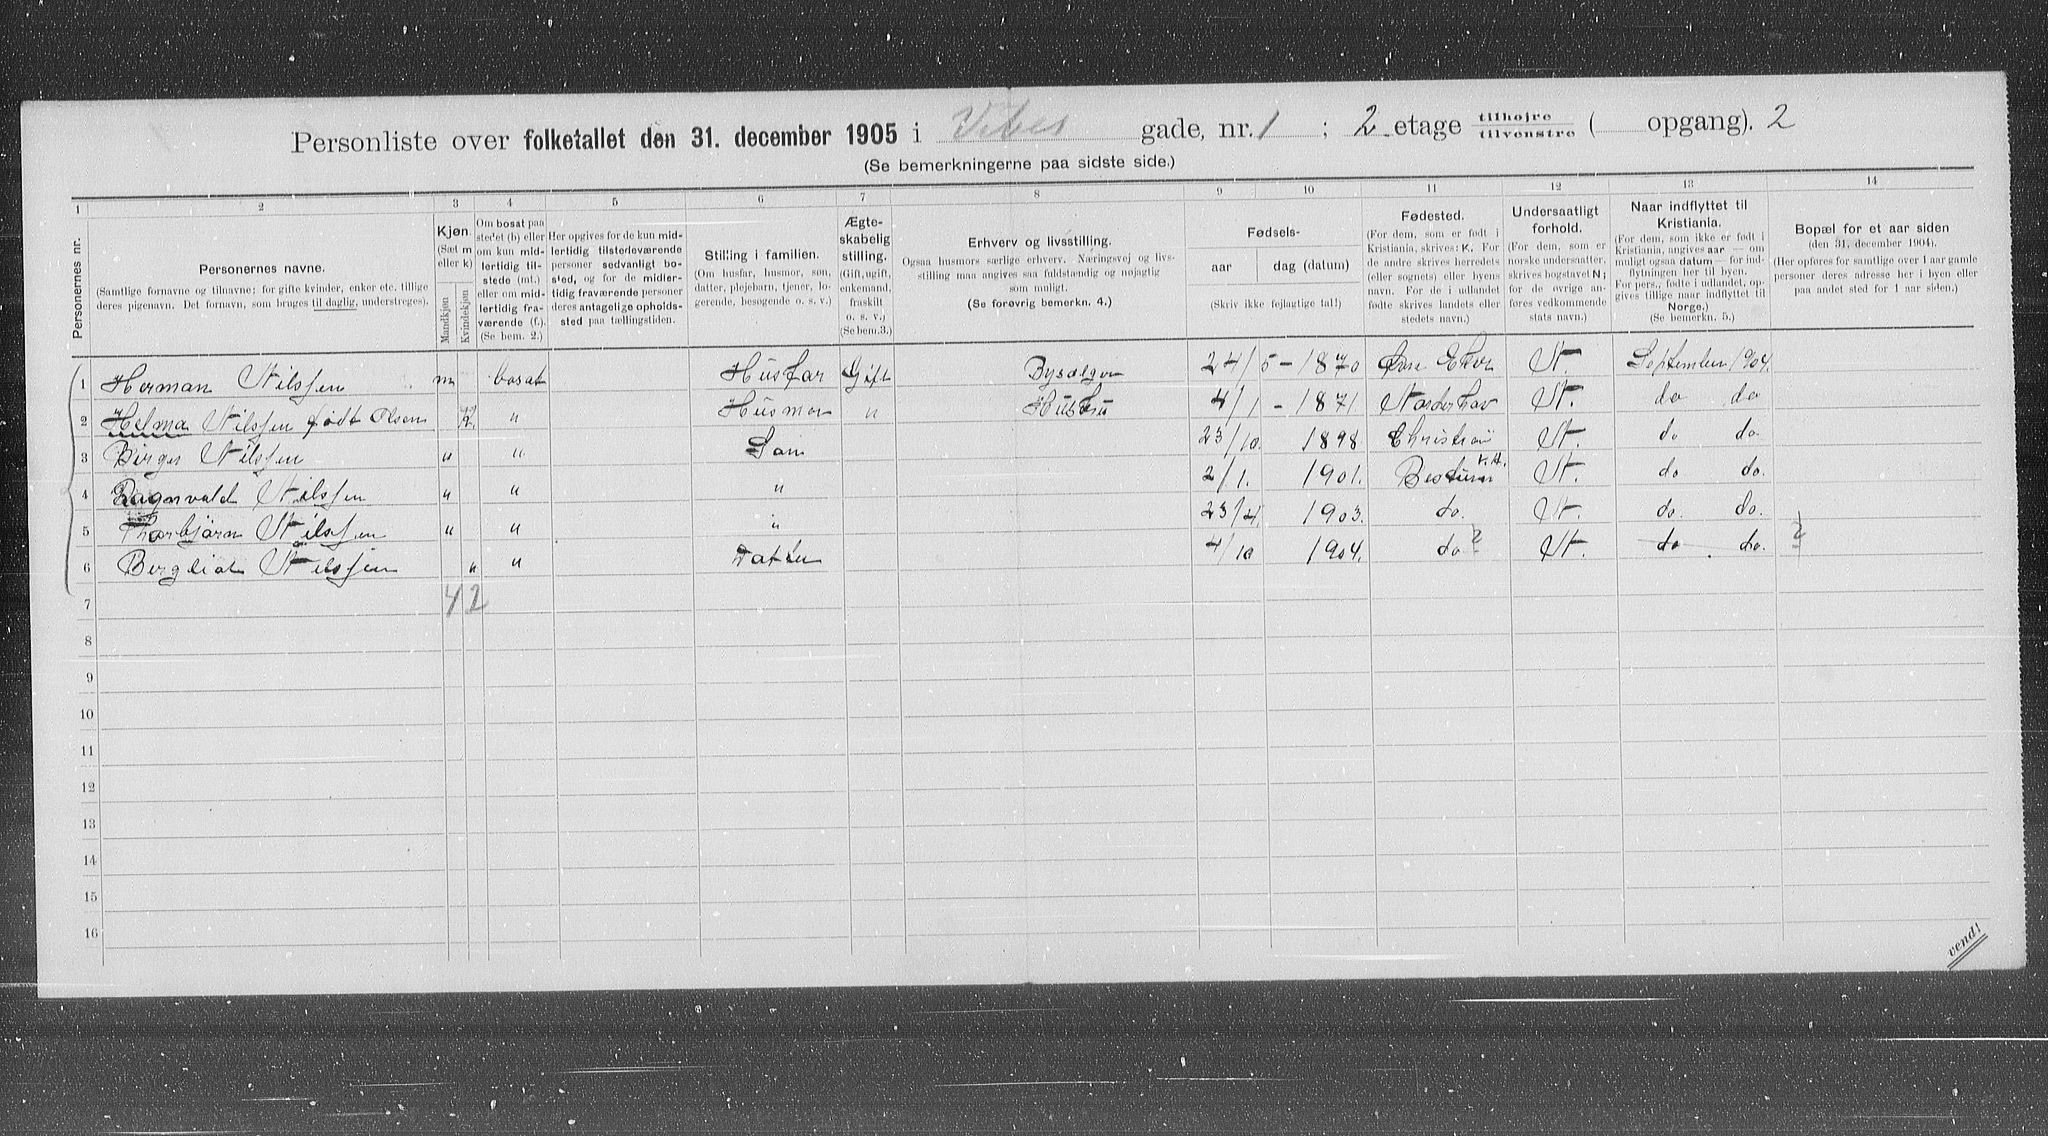 Personliste over folketallet den 31. december 1905 i Vibes gade, nr. 1 ; 2 etage tilhøjre tilvenstre ( opgang). 2
(Se bemerkningerne paa sidste side.)
1 2 3 4 5 6 7 8 9 10 11 12 13 14
Personernes nr.
Personernes navne.
(Samtlige fornavne og tilnavne; for gifte kvinder, enker etc. tillige
deres pigenavn. Det fornavn, som bruges til daglig, understreges).
Kjøn.
(Sæt m
eller k)
Mandkjøn
Kvindekjøn
Om bosat paa
stedet (b) eller
om kun mid-
lertidig til-
stede (mt.)
eller om mid-
lertidig fra-
værende (f.).
(Se bem. 2.)
Her opgives for de kun mid-
lertidig tilstedeværende
personer sedvanligt bo-
sted, og for de midler-
tidig fraværende personer
deres antagelige opholds-
sted paa tællingstiden.
Stilling i familien.
(Om husfar, husmor, søn,
datter, plejebarn, tjener, lo-
gerende, besøgende o. s. v.)
Ægte-
skabelig
stilling.
(Gift, ugift,
enkemand,
fraskilt
o. s. v.)
(Se bem. 3.)
Erhverv og livsstilling.
Ogsaa husmors særlige erhverv. Næringsvej og livs-
stilling maa angives saa fuldstændig og nøjagtig
som muligt.
(Se forøvrig bemerkn. 4.)
Fødsels-
aar dag (datum)
(Skriv ikke fejlagtige tal!)
Fødested.
(For dem, som er født i
Kristiania, skrives: K. For
de andre skrives herredets
(eller sognets) eller byens
navn. For de i udlandet
fødte skrives landets eller
stedets navn.)
Undersaatligt
forhold.
(For dem, som er
norske undersaatter,
skrives bogstavet N;
for de øvrige an-
føres vedkommende
stats navn.)
Naar indflyttet til
Kristiania.
(For dem, som ikke er født i
Kristiania, angives aar — om
muligt ogsaa datum — for ind-
flytningen her til byen.
For pers., fødte i udlandet, op-
gives tillige naar indflyttet til
Norge.)
(Se bemerkn. 5.)
Bopæl for et aar siden
(den 31. december 1904).
(Her opføres for samtlige over 1 aar gamle
personer deres adresse her i byen eller
paa andet sted for 1 aar siden.)
1 Herman Nilssen m bosat Husfar Gift 24/5 - 1870 Øvre Eker N. September 1904.
2 Helma Nilssen født Olsen k " Husmor " Hustru 4/1 - 1871. Norderhov N. do do
3 Birger Nilssen " " Søn 23/10. 1898. N. do do.
4 Ragnvald Nilssen " " " 2/1. 1901. Bestum V. A. N. do do.
5 Thorbjørn Nilssen " " " 23/4. 1903. do. N. do. do.
6 Bergliot Nilssen " " Datter 4/10 1904. do ? N. do . do. ?
7 4 2
8
9
10
11
12
13
14
15
16
vend!